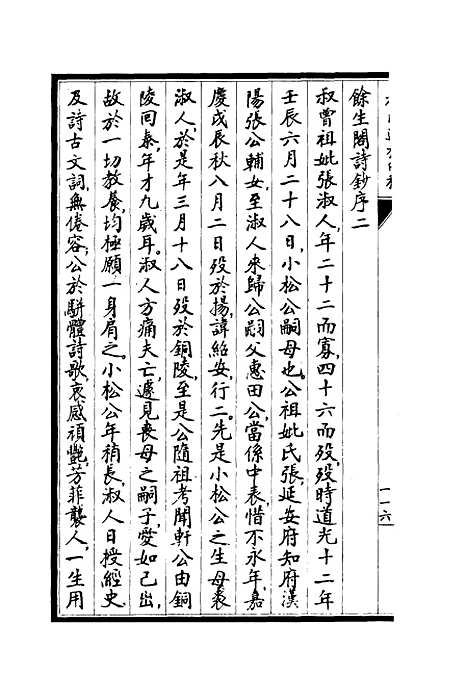 餘生閣詩鈔序二
叔曾祖妣張淑人年二十二而寡四十六而歿歿時道光十二年
壬辰六月二十八日小松公嗣母也公祖妣氏張延安府知府漢
陽張公輔女至淑人來歸公嗣父惠田公當係中表惜不永年嘉
慶戊辰秋八月二日歿於揚諱紹安行二先是小松公之生母裘
淑人於是年三月十八日歿於銅陵至是公隨祖考聞軒公由銅
陵回泰年才九歲耳淑人方痛夫亡遽見喪母之嗣子愛如己出
故於一切教養均極願一身肩之小松公年稍長淑人日授經史
及詩古文詞無倦容公於駢體詩歌哀感頑艷芳菲襲人一生用
一一六